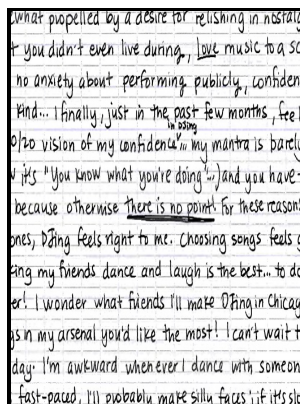 what propelled by a desire for relishing in nostalg
t you didn't even live during, love music to a sc
no anxiety about performing publicly, confiden
kind... I finally, just in the past few months, feel
in using
0/20 vision of my confidence... my mantra is barely
it's "You know what you're doing"...) and you have
because otherwise there is no point! For these reasons
ones, DJing feels right to me. Choosing songs feels
ing my friends dance and laugh is the best... to do
er! I wonder what friends I'll make DJing in Chicag
gs in my arsenal you'd like the most! I can't wait t
day. I'm awkward whenever I dance with someon
fast-paced, I'll probably make silly faces; if it's slo